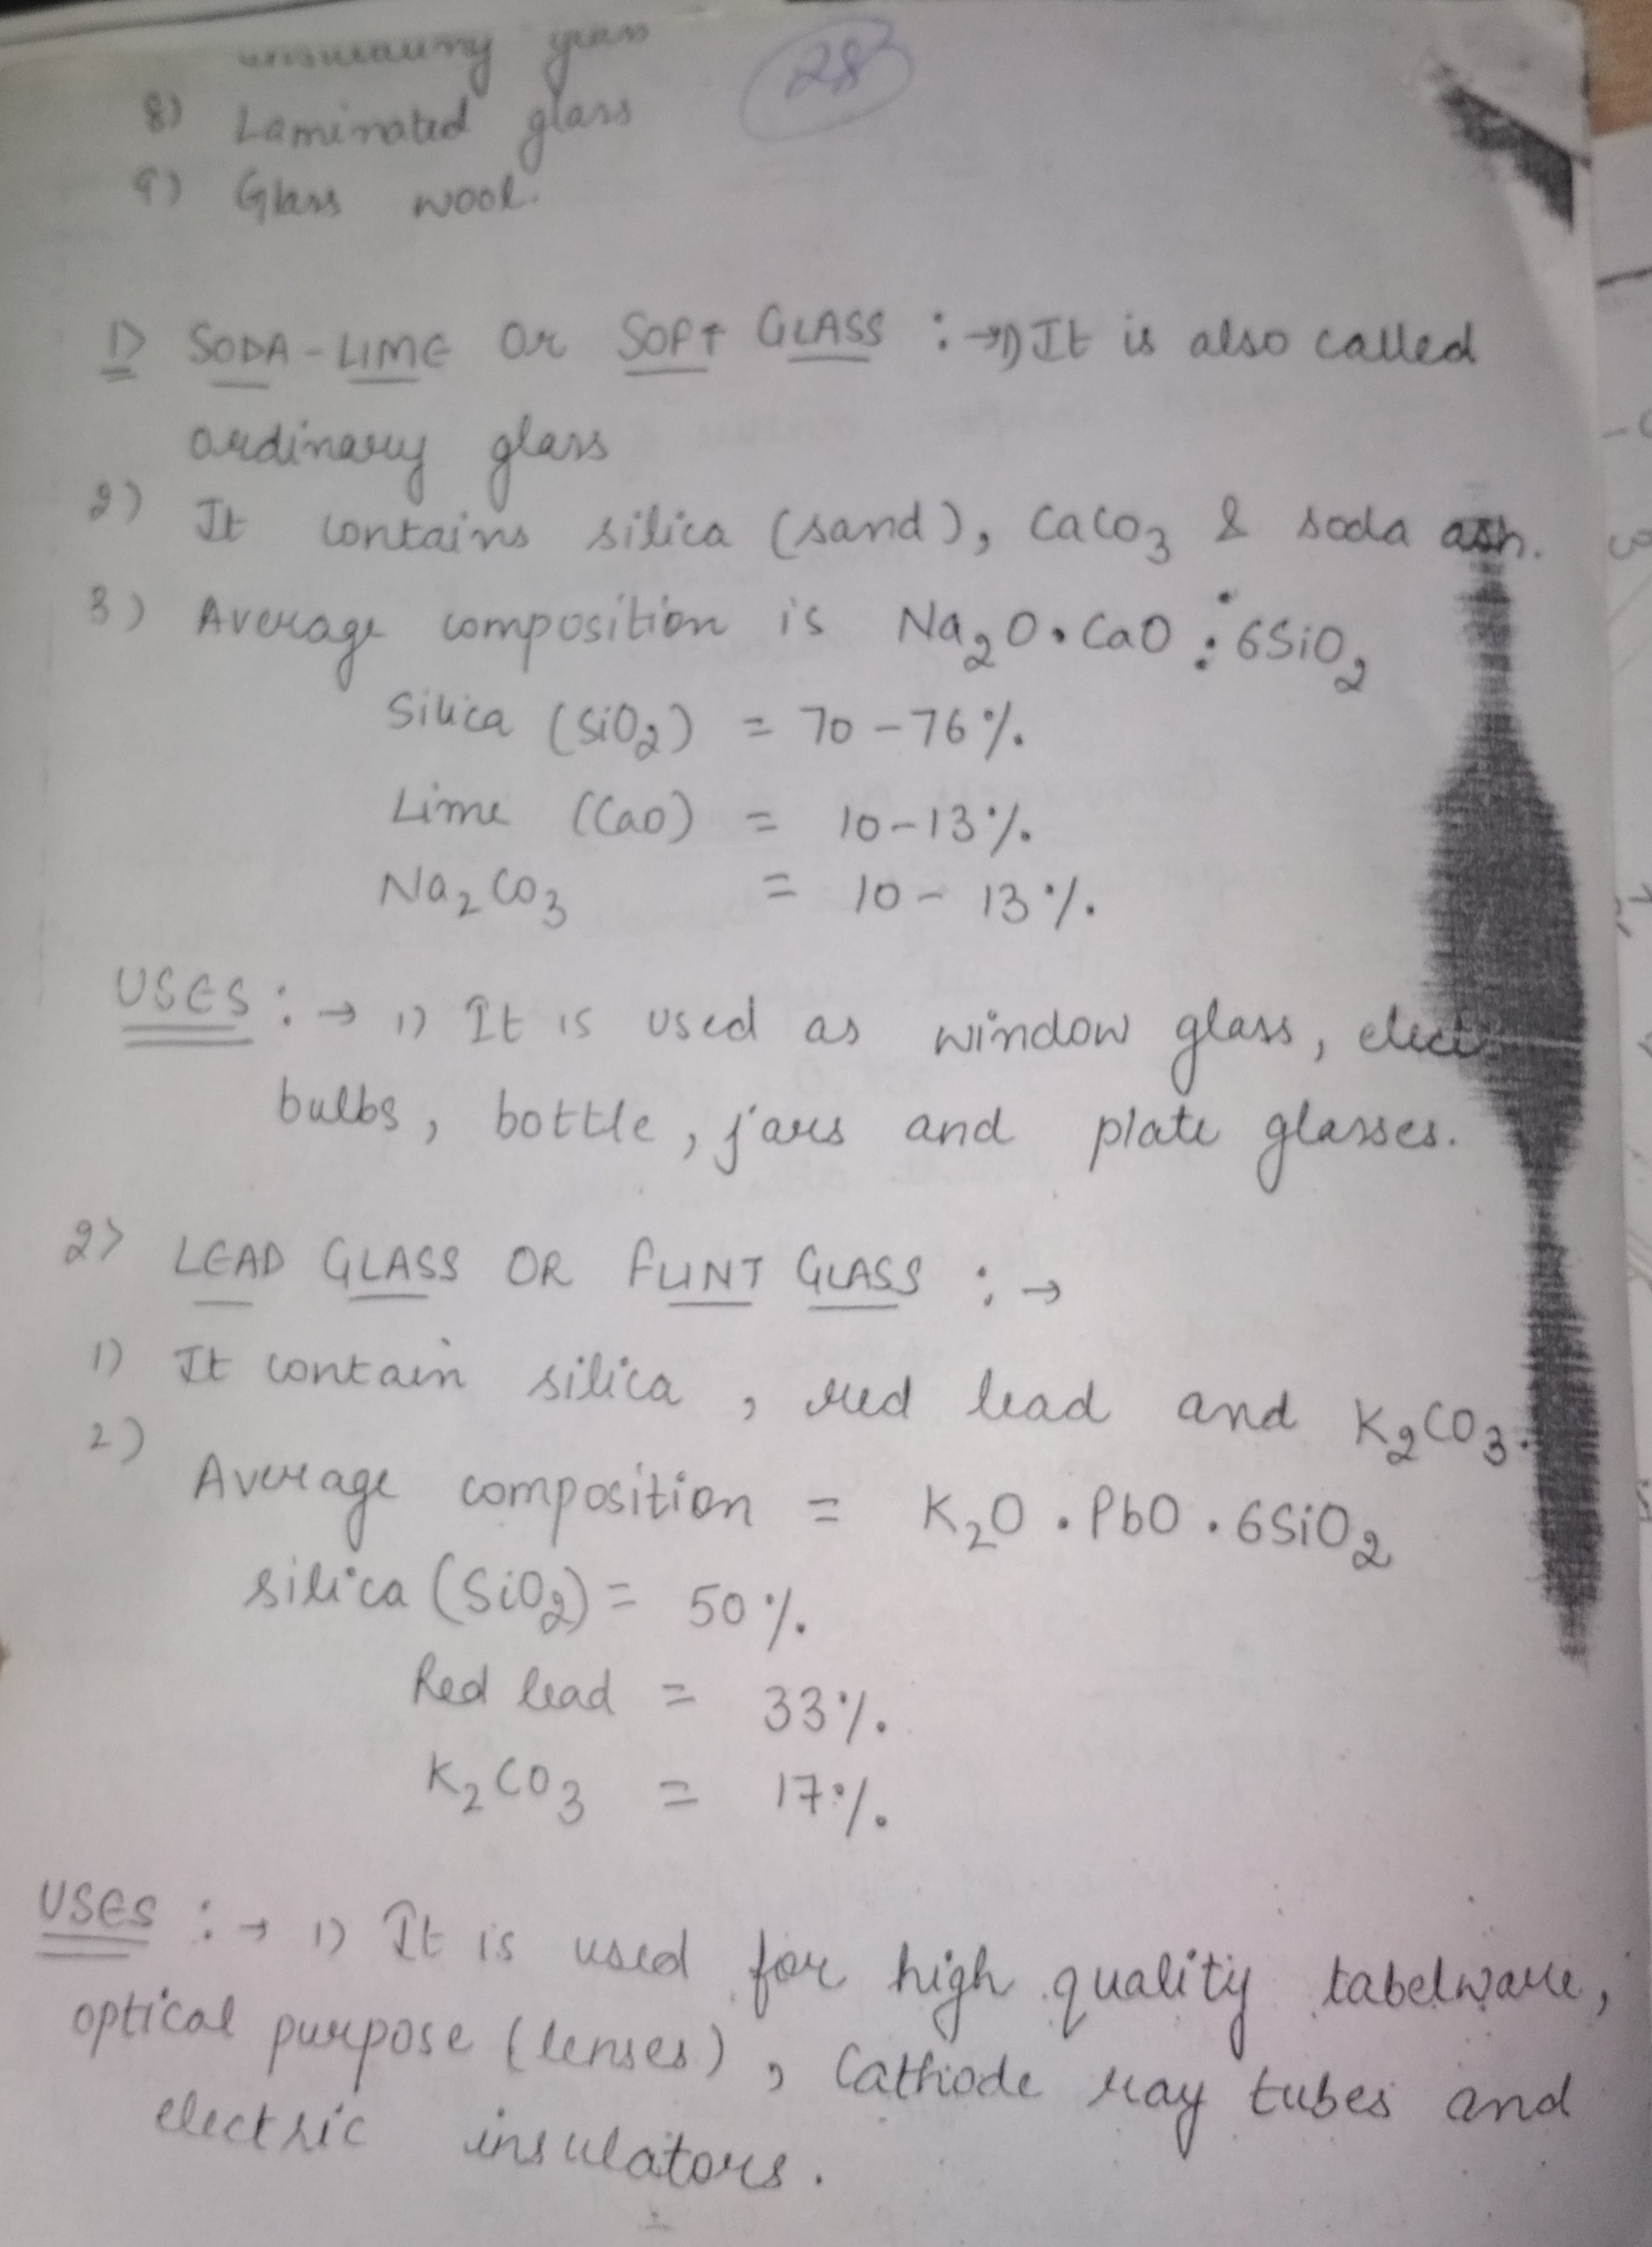 insulating glass
28
8) Laminated glass
9) Glass wool.
1) SODA-LIME OR SOFT GLASS :→1) It is also called
ordinary glass
2) It contains silica (sand), CaCO3 & soda ash.
3) Average composition is Na2O.CaO:6SiO2
Silica (SiO2) = 70-76%.
Lime (CaO) = 10-13%.
Na2CO3 = 10-13%.
USES :→ 1) It is used as window glass,
bulbs, bottle, jars and plate glasses.
2) LEAD GLASS OR FLINT GLASS :→
1) It contain silica, red lead and K2CO3.
2)
Average composition = K2O.PbO.6SiO2
silica (SiO2) = 50%.
Red lead = 33%.
K2CO3 = 17%.
USES :→ 1) It is used for high quality tabelware,
optical purpose (lenses), Cathode ray tubes and
electric insulators.